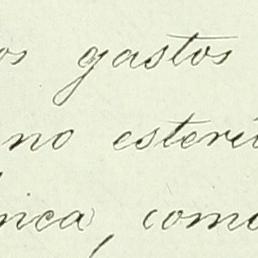 os gastos
no esteri
rica, como